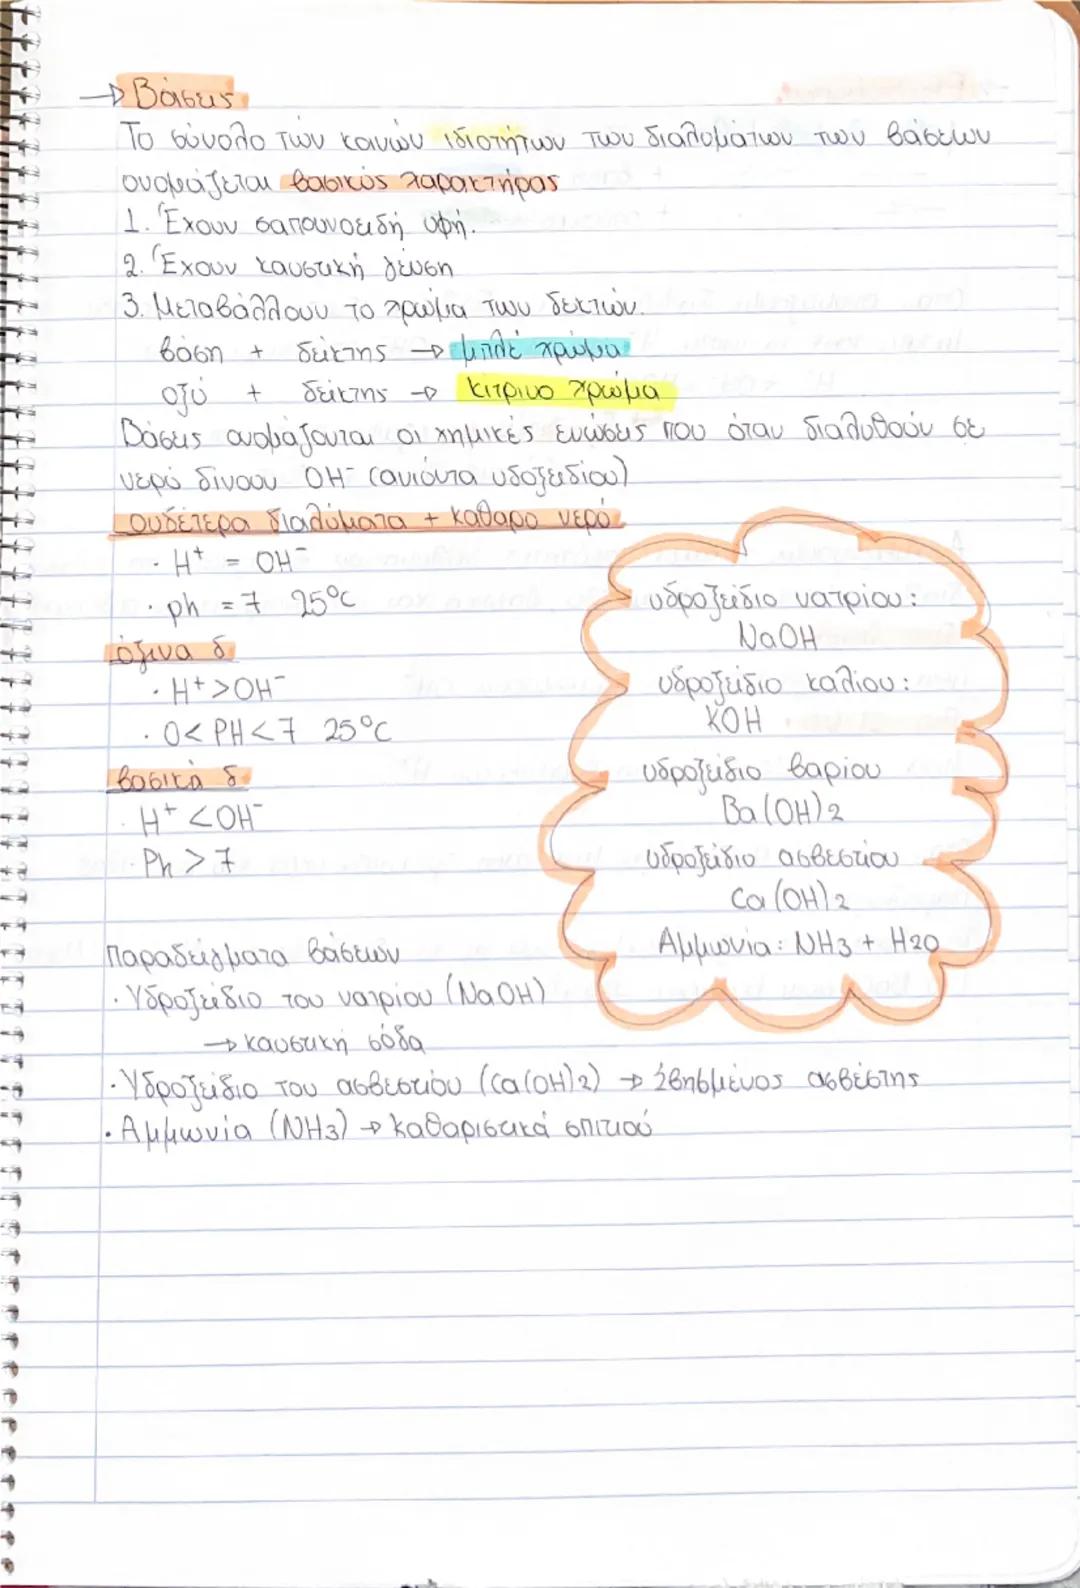 → Βάσεις
Το σύνολο των κοινών ιδιοτήτων των διαλυμάτων των βάσεων
ονομάζεται βασικός χαρακτήρας
1. Έχουν σαπουνοειδή υφή.
2. Έχουν καυστική γεύση
3. Μεταβάλλουν το χρώμα των δεκτών.
βάση + δείκτης → μπλέ χρώμα
οξύ + δείκτης → κίτρινο χρώμα
Βάσεις ονομάζονται οι χημικές ενώσεις που όταν διαλυθούν σε
νερό δίνουν OH⁻ (ανιόντα υδοξειδίου)
ουδέτερα διαλύματα + καθαρό νερό
· H⁺ = OH⁻
· ph = 7 25°C
όξινα δ.
· H⁺ > OH⁻
· 0 < PH < 7 25°C
βασικά δ.
· H⁺ < OH⁻
· Ph > 7
υδροξείδιο νατρίου:
NaOH
υδροξείδιο καλίου:
KOH
υδροξείδιο βαρίου
Ba(OH)2
υδροξείδιο ασβεστίου
Ca(OH)2
Αμμωνία: NH3 + H2O
Παραδείγματα βάσεων
· Υδροξείδιο του νατρίου (NaOH)
→ καυστική σόδα
· Υδροξείδιο του ασβεστίου (Ca(OH)2) → Σβησμένος ασβέστης
· Αμμωνία (NH3) → καθαριστικά σπιτιού